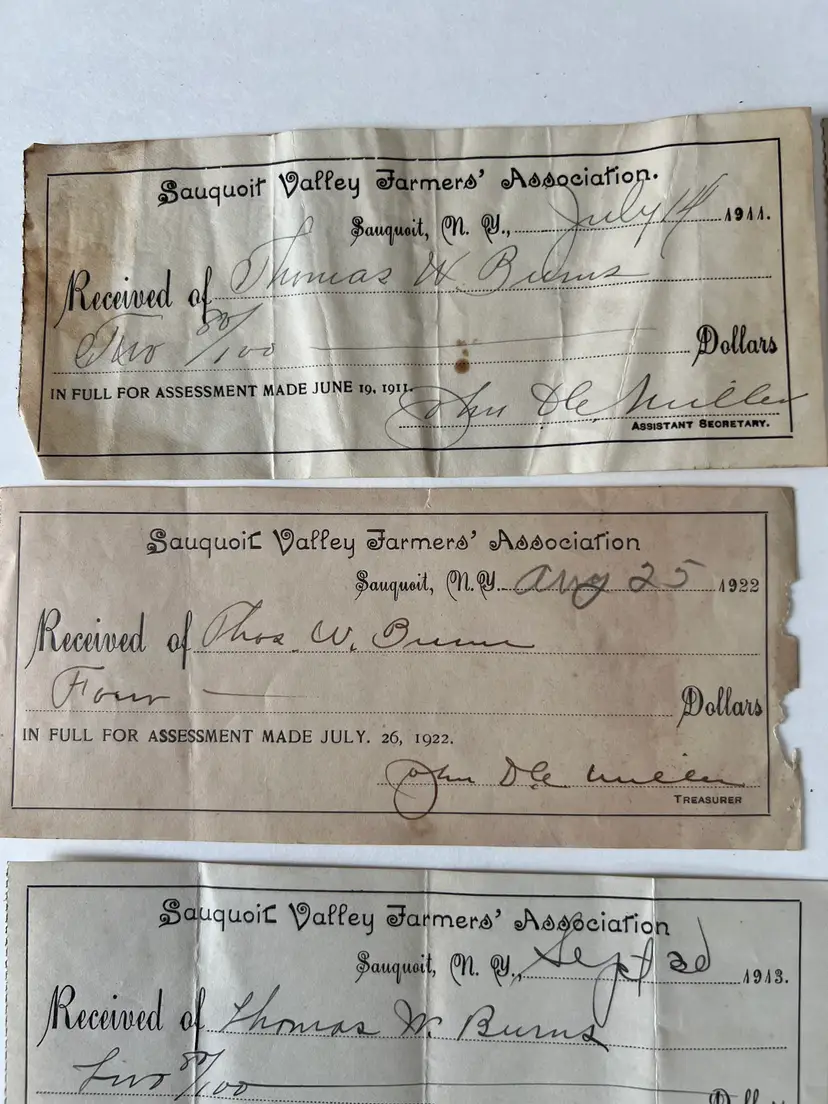 Sauquoit Valley Farmers' Association.
Sauquoit, N. Y., July 14 1911.
Received of Thomas W. Burns
Two 80/100 Dollars
IN FULL FOR ASSESSMENT MADE JUNE 19, 1911.
John De Miller
ASSISTANT SECRETARY.
Sauquoit Valley Farmers' Association
Sauquoit, N. Y. Aug 25 1922
Received of Thos. W. Burns
Four Dollars
IN FULL FOR ASSESSMENT MADE JULY. 26, 1922.
John De Miller
TREASURER
Sauquoit Valley Farmers' Association
Sauquoit, N. Y., Sept 3d 1913.
Received of Thomas W. Burns
Two 80/100